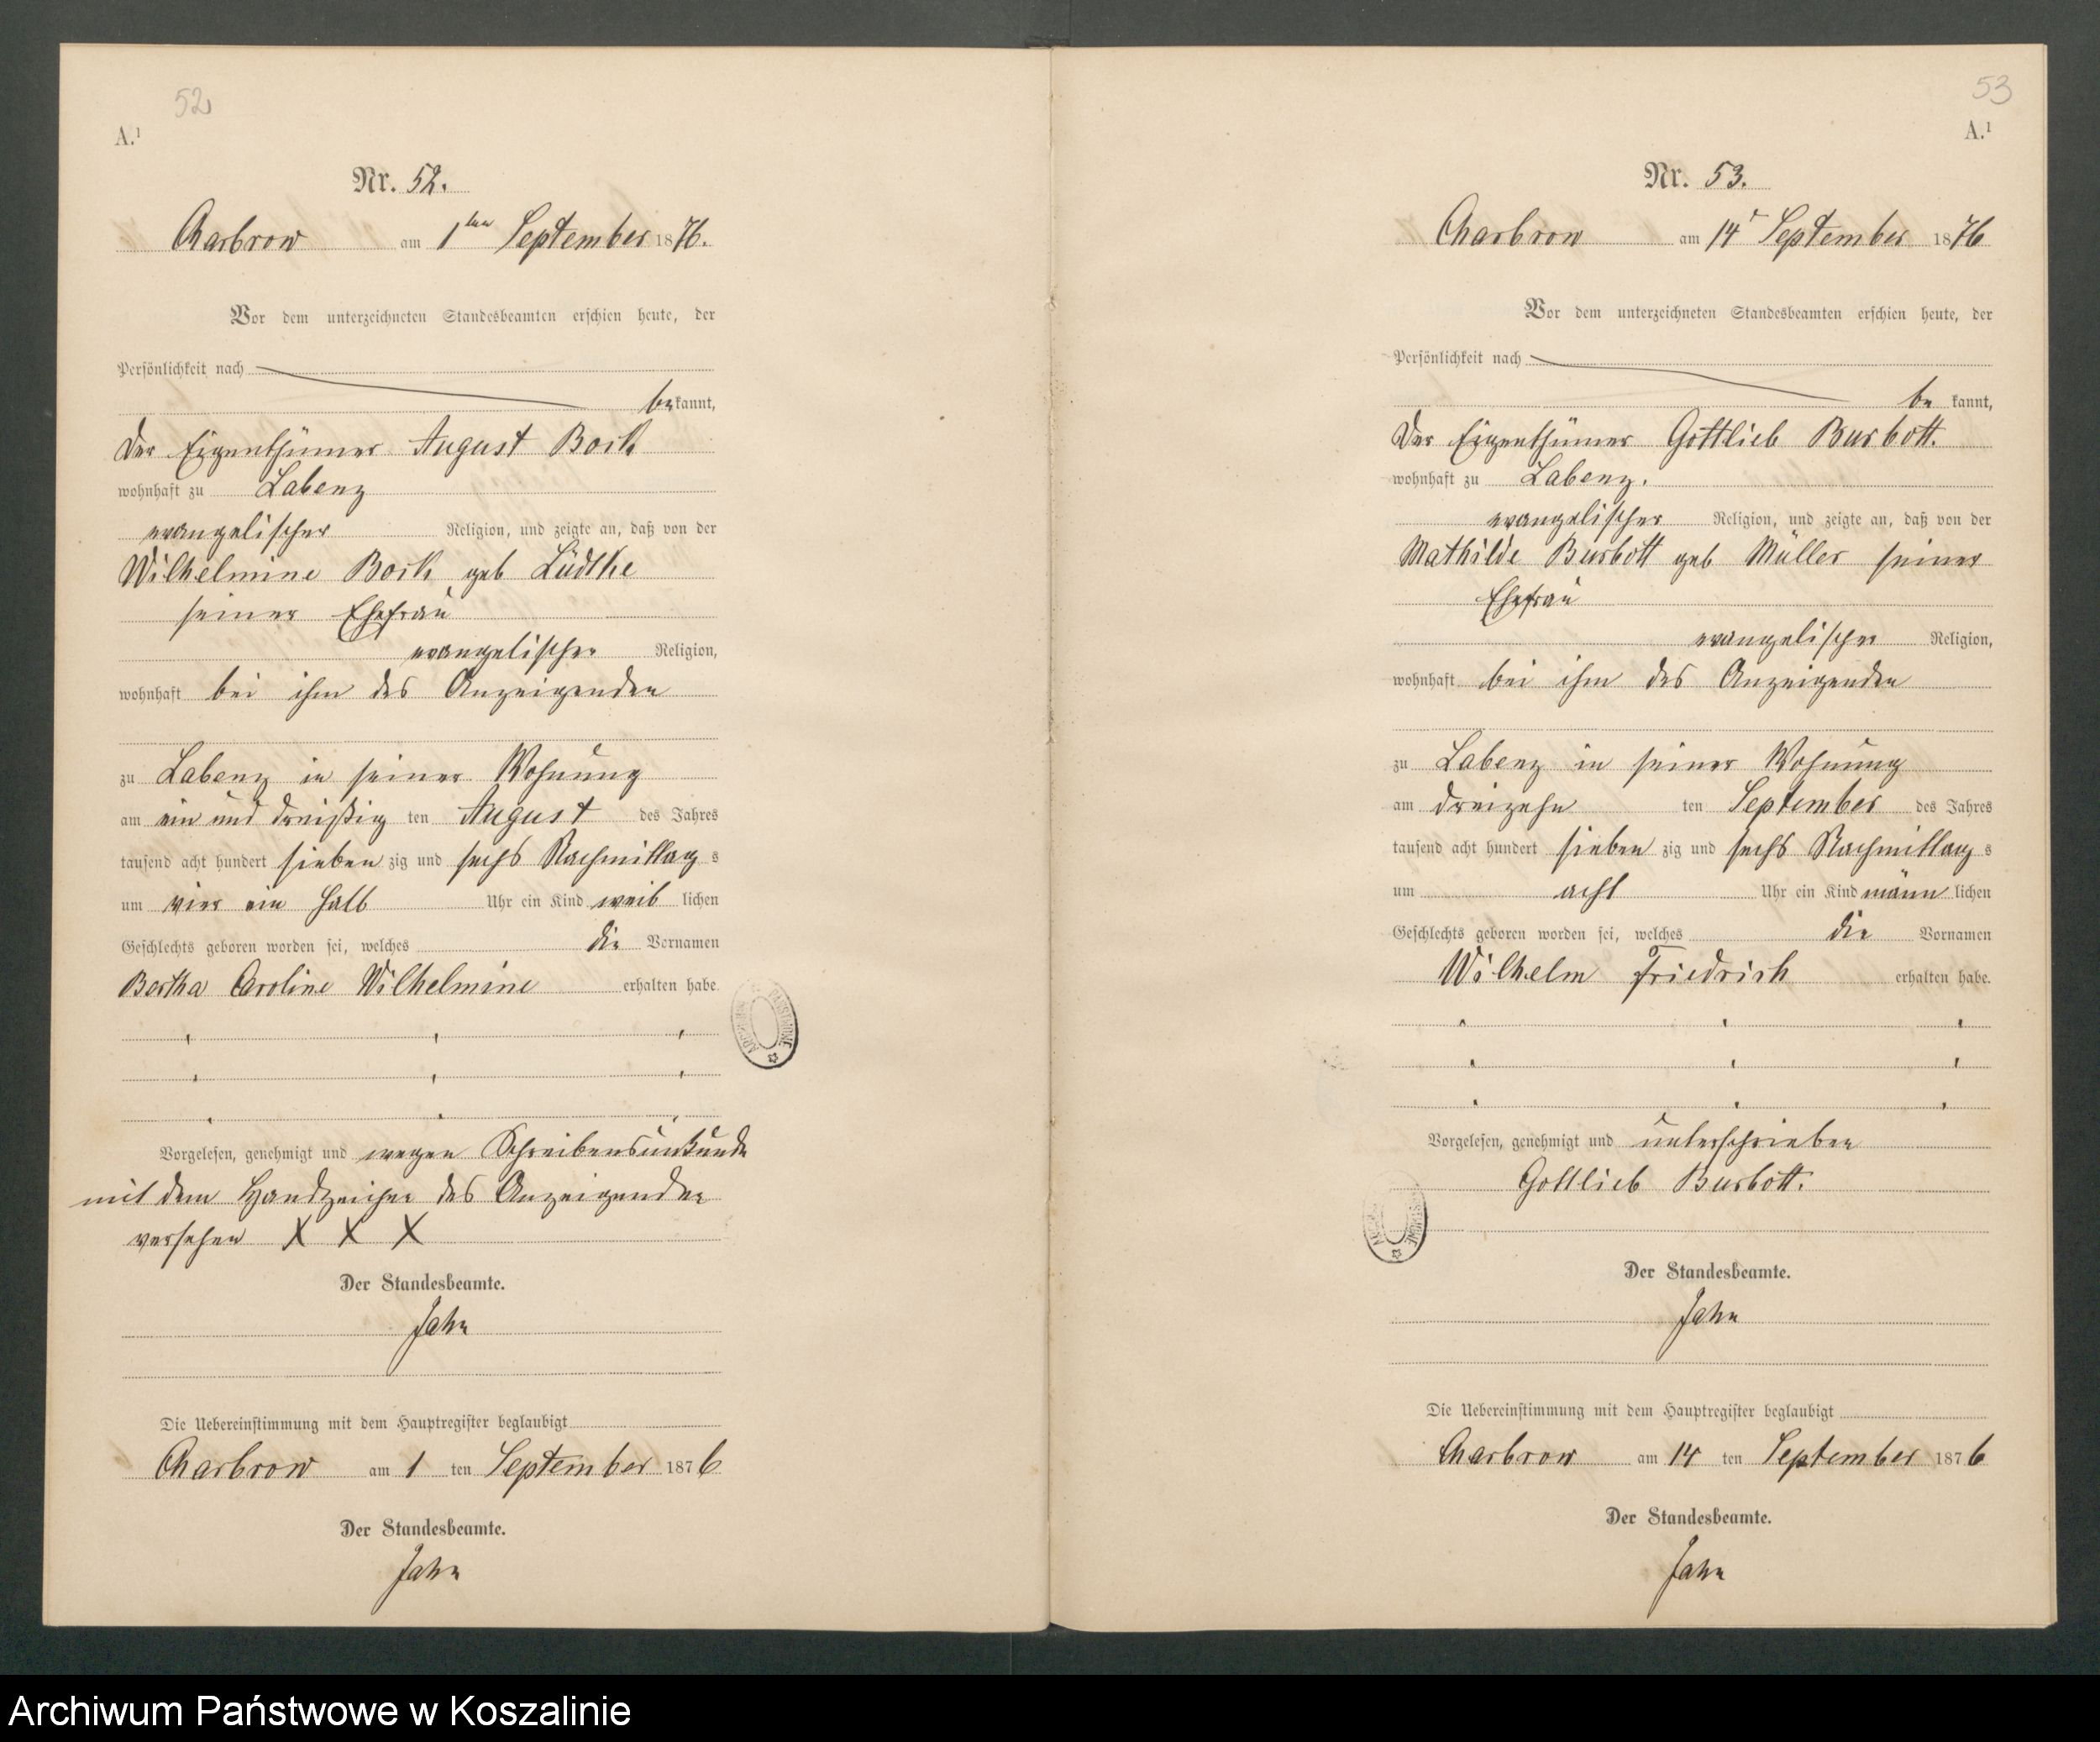 52
A.¹
Nr. 52.
Charbrow am 1ten September 1876.
Vor dem unterzeichneten Standesbeamten erschien heute, der
Persönlichkeit nach
bekannt,
der Eigenthümer August Bork
wohnhaft zu Labenz
evangelischer Religion, und zeigte an, daß von der
Wilhelmine Bork geb Lüdtke
seiner Ehefrau
evangelischer Religion,
wohnhaft bei ihm des Anzeigenden
zu Labenz in seiner Wohnung
am ein und dreißig ten August des Jahres
tausend acht hundert sieben zig und sechs Nachmittag s
um vier ein halb Uhr ein Kind weib lichen
Geschlechts geboren worden sei, welches die Vornamen
Bertha Caroline Wilhelmine erhalten habe
Vorgelesen, genehmigt und wegen Schreibensunkunde
mit dem Handzeichen des Anzeigenden
versehen X X X
Der Standesbeamte.
Jahn
Die Uebereinstimmung mit dem Hauptregister beglaubigt
Charbrow am 1 ten September 1876
Der Standesbeamte.
Jahn
53
A.¹
Nr. 53.
Charbrow am 14t September 1876
Vor dem unterzeichneten Standesbeamten erschien heute, der
Persönlichkeit nach
be kannt,
der Eigenthümer Gottlieb Burbott.
wohnhaft zu Labenz.
evangelischer Religion, und zeigte an, daß von der
Mathilde Burbott geb Müller seiner
Ehefrau
evangelischer Religion,
wohnhaft bei ihm des Anzeigenden
zu Labenz in seiner Wohnung
am dreizehn ten September des Jahres
tausend acht hundert sieben zig und sechs Nachmittag s
um acht Uhr ein Kind männ lichen
Geschlechts geboren worden sei, welches die Vornamen
Wilhelm Friedrich erhalten habe.
Vorgelesen, genehmigt und unterschrieben
Gottlieb Burbott.
Der Standesbeamte.
Jahn
Die Uebereinstimmung mit dem Hauptregister beglaubigt
Charbrow am 14 ten September 1876
Der Standesbeamte.
Jahn
Archiwum Państwowe w Koszalinie